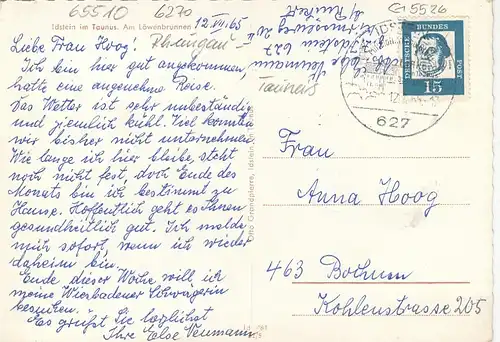 65510
6270
C15526
Idstein im Taunus. Am Löwenbrunnen
12.VIII.65
Liebe Frau Hoog!
Rheingau-
Taunus
Ich bin hier gut angekommen,
hatte eine angenehme Reise.
Das Wetter ist sehr unbeständig
und ziemlich kühl. Viel konnten
wir bisher nicht unternehmen.
Wie lange ich hier bleibe, steht
noch nicht fest, doch Ende des
Monats bin ich bestimmt zu
Hause. Hoffentlich geht es Ihnen
gesundheitlich gut. Ich melde
mich sofort, wenn ich wieder
daheim bin.
Ende dieser Woche will ich
meine Wiesbadener Schwägerin
besuchen.
Es grüßt Sie herzlichst
Ihre Else Neumann
627
DEUTSCHE
BUNDES
POST
15
627
Frau
Anna Hoog
463 Bochum
Kohlenstrasse 205